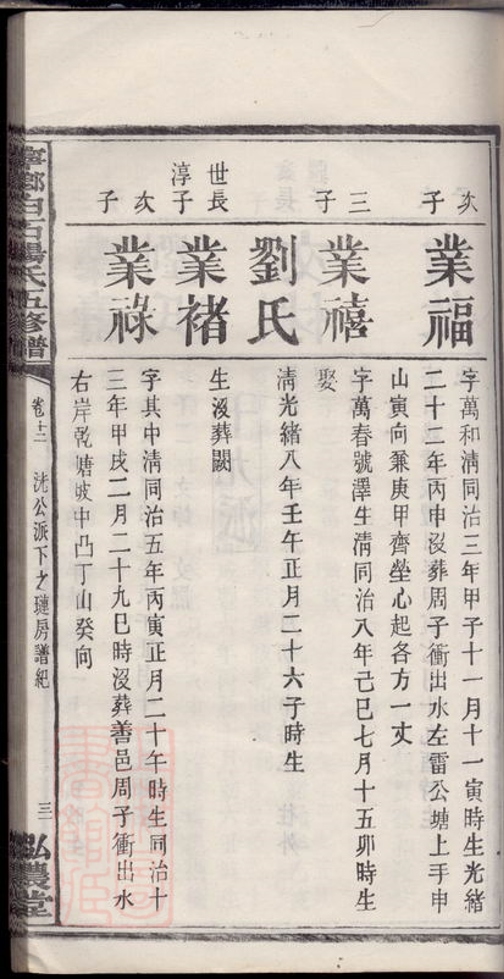 次子
業福
字萬和清同治三年甲子十一月十一寅時生光緒
二十二年丙申沒葬周子衝出水左雷公塘上手申
山寅向兼庚甲齊塋心起各方一丈
三子
業禧
字萬春號澤生清同治八年己巳七月十五卯時生
娶
劉氏
清光緒八年壬午正月二十六子時生
世長
淳子
業褚
生沒葬闕
次子
業祿
字其中清同治五年丙寅正月二十午時生同治十
三年甲戌二月二十九巳時沒葬善邑周子衝出水
右岸乾塘坡中凸丁山癸向
寧鄉白石楊氏五修譜
卷十二
洗公派下之璉房譜紀
三
弘農堂